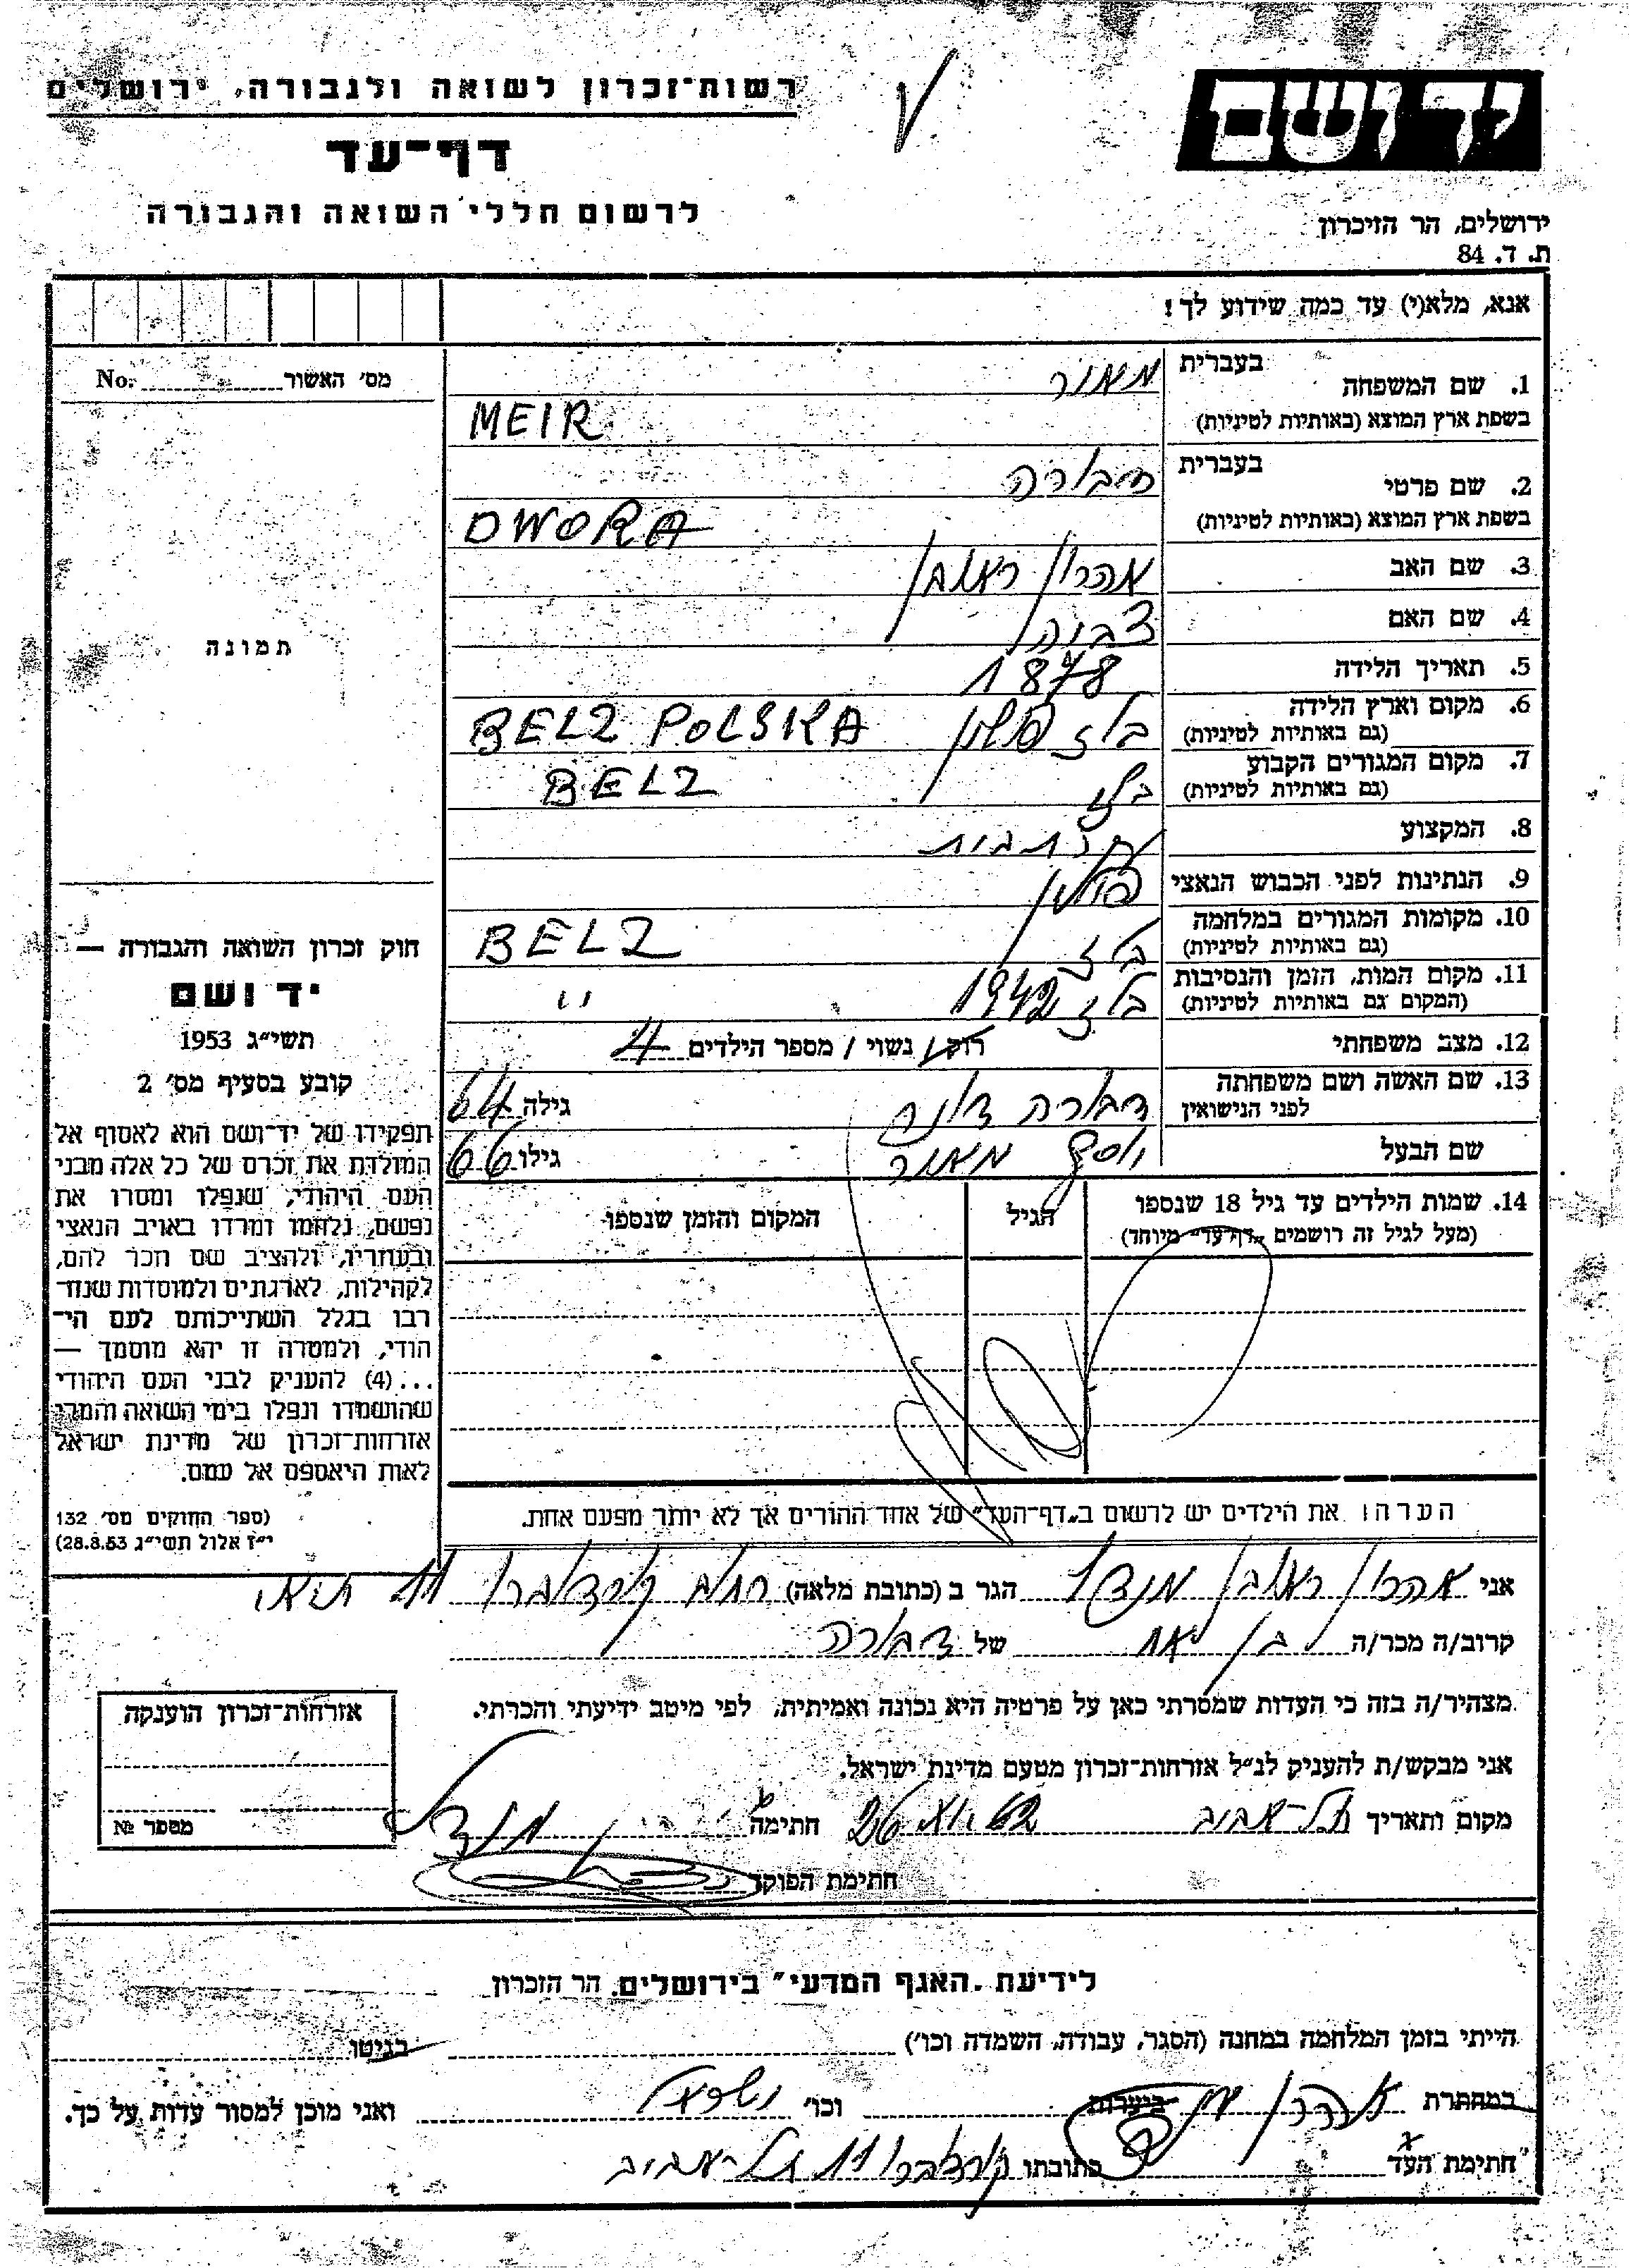 רשות־זכרון לשואה ולגבורה, ירושלים
דף־עד
לרשום חללי השואה והגבורה
יד ושם
ירושלים, הר הזיכרון
ת. ד. 84
אנא, מלא(י) עד כמה שידוע לך!
מס׳ האשור No.
תמונה
1. שם המשפחה בעברית מאור
בשפת ארץ המוצא (באותיות לטיניות) MEIR
2. שם פרטי בעברית דבורה
בשפת ארץ המוצא (באותיות לטיניות) DWORA
3. שם האב אהרון ראובן
4. שם האם
5. תאריך הלידה 1878
6. מקום וארץ הלידה (גם באותיות לטיניות) בלז פולין BELZ POLSKA
7. מקום המגורים הקבוע (גם באותיות לטיניות) בלז BELZ
8. המקצוע
9. הנתינות לפני הכבוש הנאצי פולין
10. מקומות המגורים במלחמה (גם באותיות לטיניות) בלז BELZ
11. מקום המות, הזמן והנסיבות (המקום גם באותיות לטיניות) בלז 1942 "
12. מצב משפחתי רוק / נשוי / מספר הילדים 4
13. שם האשה ושם משפחתה לפני הנישואין דבורה גילה 64
שם הבעל יוסף מאור גילו 66
14. שמות הילדים עד גיל 18 שנספו
(מעל לגיל זה רושמים „דף־עד״ מיוחד)
הגיל
המקום והזמן שנספו
הערה: את הילדים יש לרשום ב„דף־העד״ של אחד ההורים אך לא יותר מפעם אחת.
חוק זכרון השואה והגבורה —
יד ושם
תשי״ג 1953
קובע בסעיף מס׳ 2
תפקידו של יד־ושם הוא לאסוף אל
המולדת את זכרם של כל אלה מבני
העם היהודי, שנפלו ומסרו את
נפשם, נלחמו ומרדו באויב הנאצי
ובעוזריו, ולהציב שם וזכר להם,
לקהילות, לארגונים ולמוסדות שנח־
רבו בגלל השתייכותם לעם הי־
הודי, ולמטרה זו יהא מוסמך —
...(4) להעניק לבני העם היהודי
שהושמדו ונפלו בימי השואה והמרי
אזרחות־זכרון של מדינת ישראל
לאות היאספם אל עמם.
(ספר החוקים מס׳ 132
י״ז אלול תשי״ג 28.8.53)
אני אהרון ראובן מנדל הגר ב (כתובת מלאה) רחוב 11
קרוב/ה מכר/ה בן של דבורה
מצהיר/ה בזה כי העדות שמסרתי כאן על פרטיה היא נכונה ואמיתית, לפי מיטב ידיעתי והכרתי.
אני מבקש/ת להעניק לנ״ל אזרחות־זכרון מטעם מדינת ישראל.
מקום ותאריך תל־אביב 26 חתימה
חתימת הפוקד
אזרחות־זכרון הוענקה
מספר №
לידיעת „האגף המדעי״ בירושלים, הר הזכרון
הייתי בזמן המלחמה במחנה (הסגר, עבודה, השמדה וכו׳) בגיטו
במחתרת ביערות וכו׳ ואני מוכן למסור עדות על כך.
חתימת העד כתובתו 11 תל־אביב